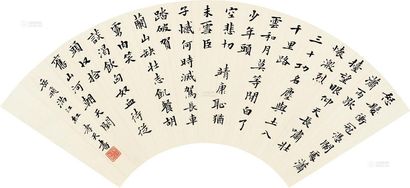 怒髮衝冠憑闌處瀟
瀟雨歇
擡望眼仰天長嘯壯
懷激烈
三十功名塵與土八
千里路
雲和月莫等閑白了
少年頭
空悲切 靖康恥猶
未雪臣
子憾何時滅駕長車
踏破賀
蘭山缺壯志飢餐胡
虜肉笑
談渴飲匈奴血待從
頭收拾
舊山河朝天闕
岳飛滿江紅 秀天書